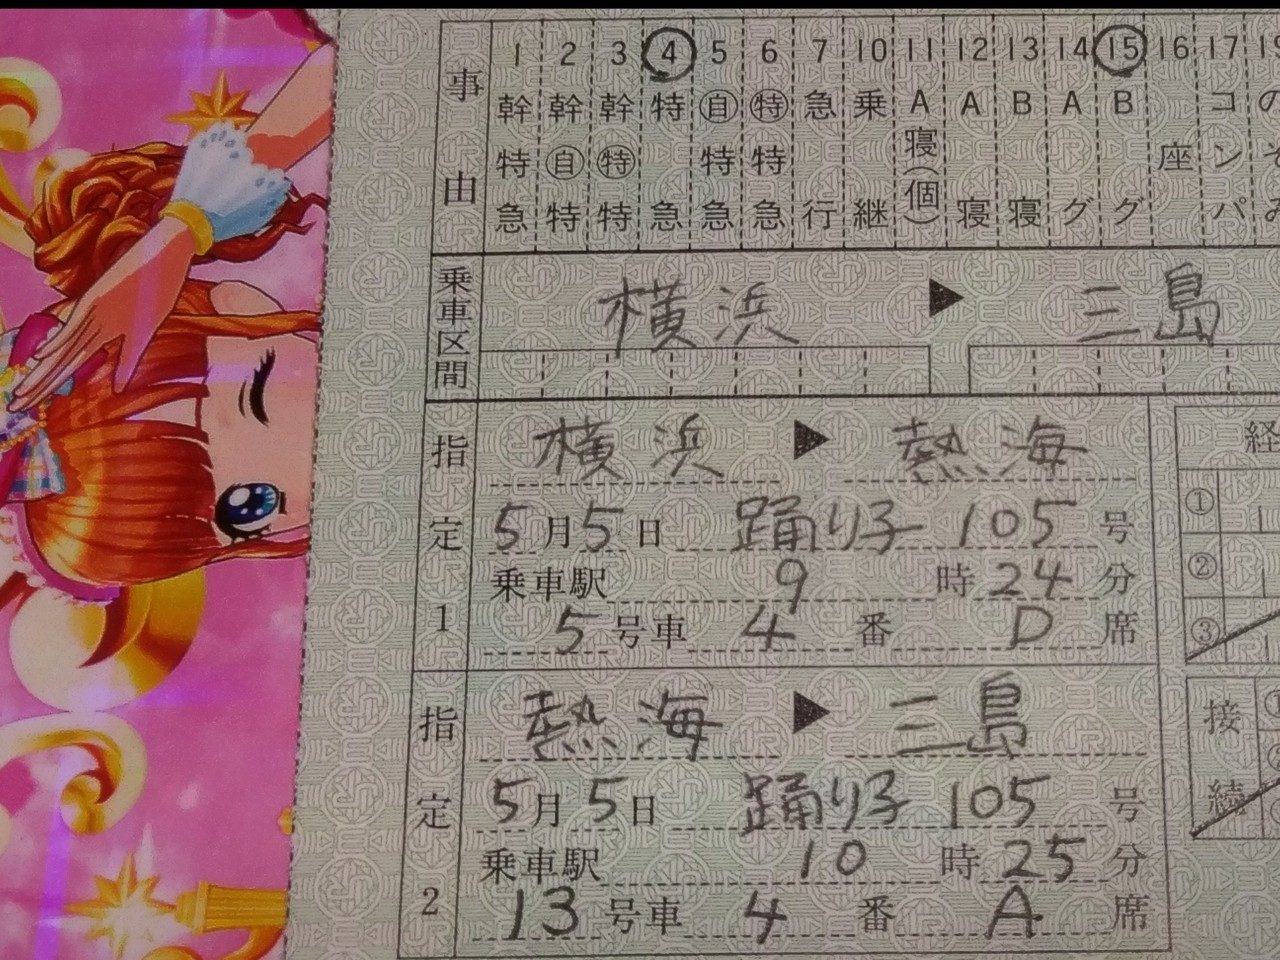 事由
1 幹特急
2 幹自特
3 幹特特
4 特急
5 自特急
6 特特急
7 急行
10 乗継
11 A寝(個)
12 A寝
13 B寝
14 Aグ
15 Bグ
16 座
17 コンパ
乗車区間
横浜 ▶ 三島
指定1
横浜 ▶ 熱海
5月5日 踊り子 105号
乗車駅 9時24分
5号車 4番 D席
指定2
熱海 ▶ 三島
5月5日 踊り子 105号
乗車駅 10時25分
13号車 4番 A席
経
①
②
③
接続